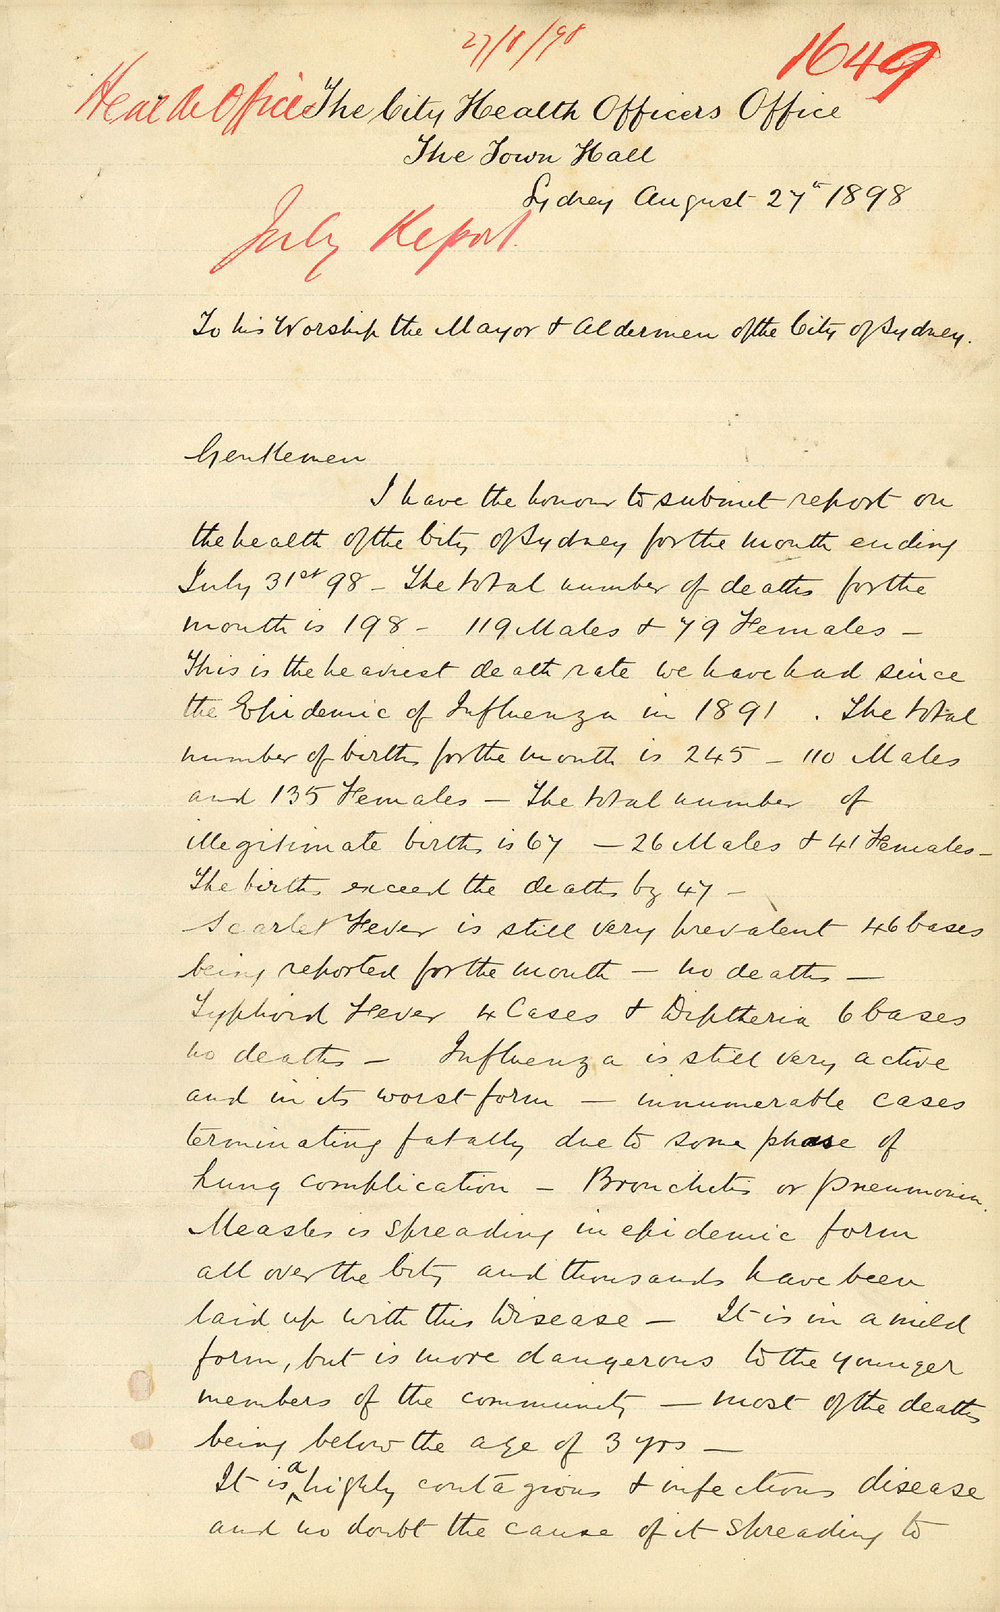 27/8/98
1649
Health Office The City Health Officers Office
The Town Hall
Sydney August 27th 1898
July Report.
To his Worship the Mayor & Aldermen of the City of Sydney.
Gentlemen
I have the honour to submit report on
the health of the City of Sydney for the month ending
July 31st 98 - The total number of deaths for the
month is 198 - 119 Males & 79 Females -
This is the heaviest death rate we have had since
the Epidemic of Influenza in 1891 . The total
number of births for the month is 245 - 110 Males
and 135 Females - The total number of
illegitimate births is 67 - 26 Males & 41 Females -
The births exceed the deaths by 47 -
Scarlet Fever is still very prevalent 46 Cases
being reported for the month - no deaths -
Typhoid Fever 4 Cases & Diptheria 6 Cases
no deaths - Influenza is still very active
and in its worst form - innumerable cases
terminating fatally due to some phase of
Lung complication - Bronchitis or pneumonia.
Measles is spreading in epidemic form
all over the City and thousands have been
laid up with this Disease - It is in a mild
form, but is more dangerous to the younger
members of the community - most of the deaths
being below the age of 3 yrs -
It is a highly contagious & infectious disease
and no doubt the cause of it spreading to